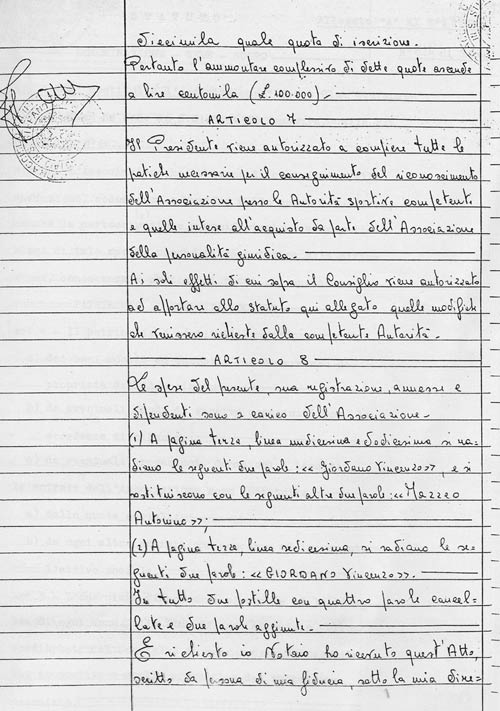 diecimila quale quota di iscrizione.
Pertanto l'ammontare complessivo di dette quote ascende
a lire centomila (£.100.000). —
— ARTICOLO 7 —
Il Presidente viene autorizzato a compiere tutte le
patiche necessarie per il conseguimento del riconoscimento
dell'Associazione presso le Autorità sportive competenti
e quelle intese all'acquisto da parte dell'Associazione
della personalità giuridica. —
Ai soli effetti di cui sopra il Consiglio viene autorizzato
ad apportare allo statuto qui allegato quelle modifiche
che venissero richieste dalla competente Autorità. -
— ARTICOLO 8 —
Le spese del presente, sua registrazione, annesse e
dipendenti sono a carico dell'Associazione. -
(1) A pagina terza, linea undicesima e dodicesima si ra-
diano le seguenti due parole: << Giordano Vincenzo>>, e si
sostituiscono con le seguenti altre due parole: << Mazzeo
Antonino >>; —
(2) A pagina terza, linea sedicesima, si radiano le se-
guenti due parole: <<GIORDANO Vincenzo>>.
In tutto due postille con quattro parole cancel-
late e due parole aggiunte. —
E richiesto io Notaio ho ricevuto quest'Atto
scritto da persona di mia fiducia, sotto la mia dire=